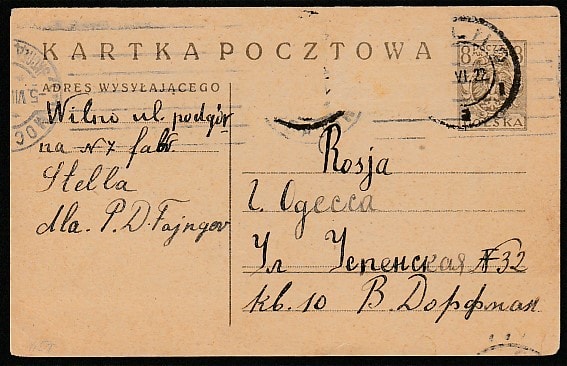 KARTKA POCZTOWA
ADRES WYSYŁAJĄCEGO
Wilno ul. podgór
na N7 fabr.
Stella
dla. P. D. Fajngor
Rosja
г. Одесса
Ул Успенская №32
кв. 10 В. Дорфман
8 8
VI.22
POLSKA